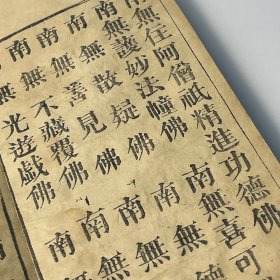 無住阿僧祇精進功德佛
南無護妙法幢佛 南無喜可
南無散疑佛 南無
南無善見佛 南無
南無不藏覆佛 南無
光遊戲佛 南